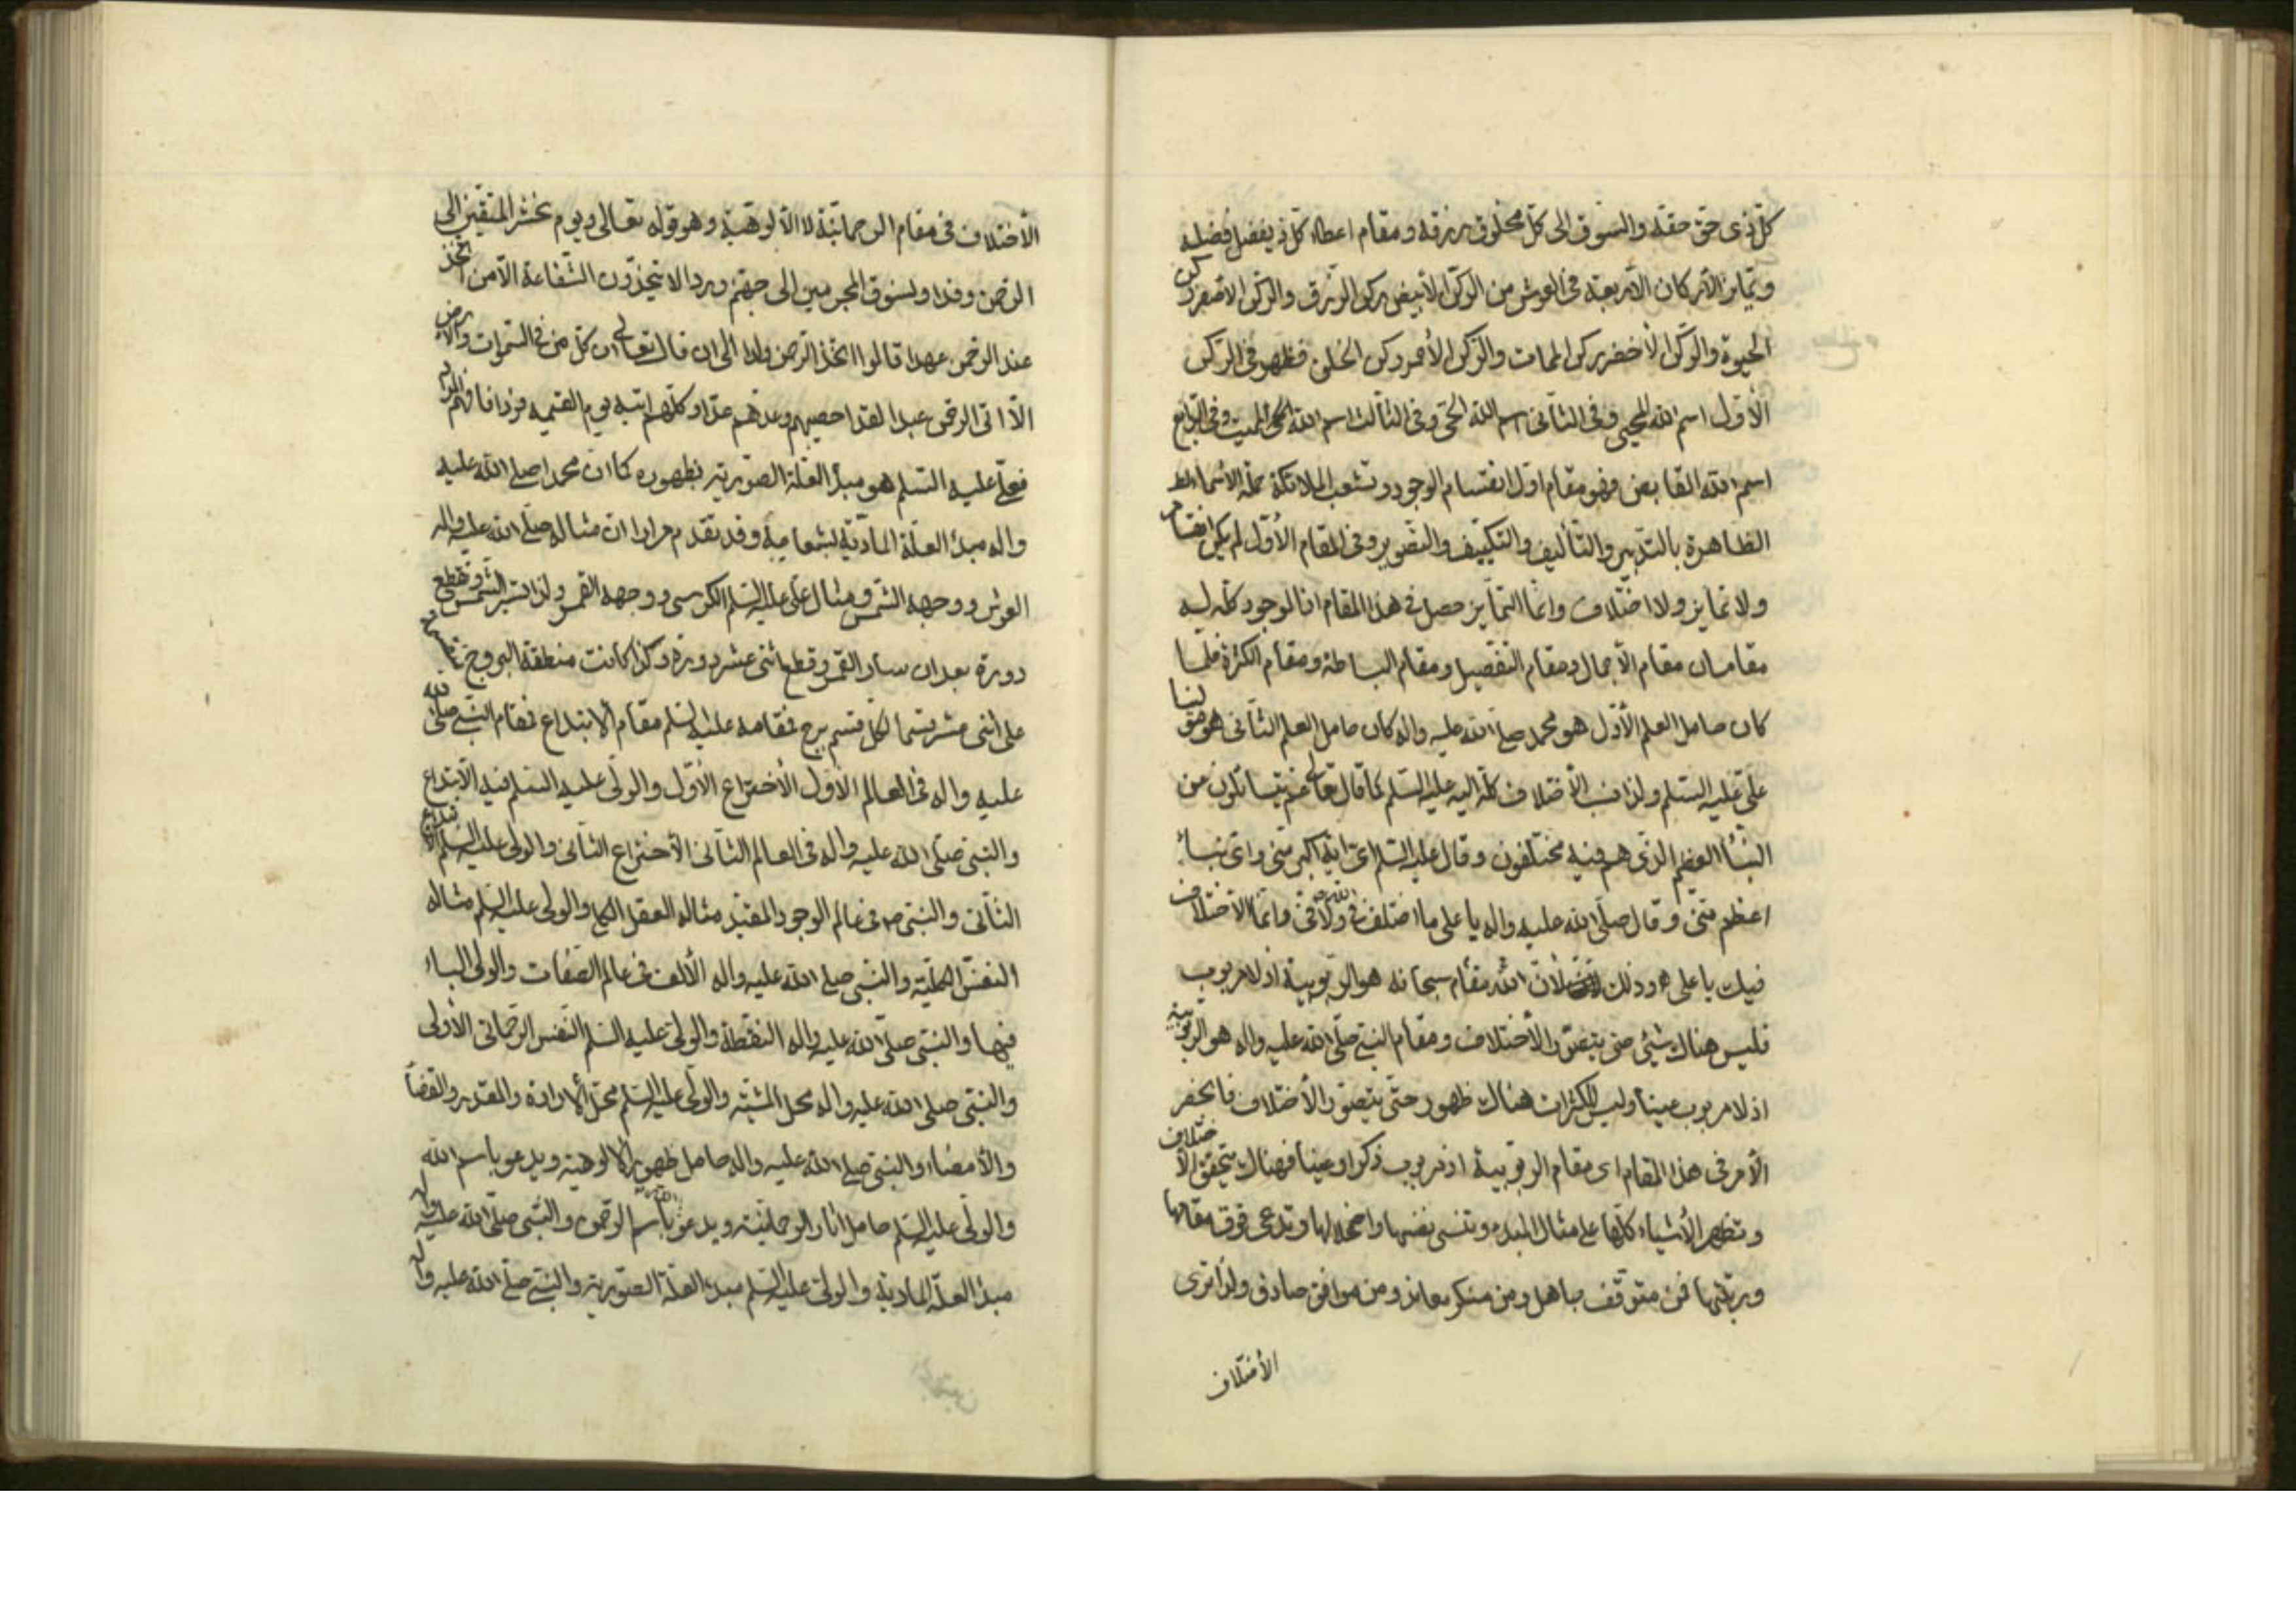 كلّ ذى حق حقه والسوق الى كلّ مخلوق برزقه ومقام اعطاء كلّ ذى فضل فضله
وتمايز الأركان الأربعة فى العرش من الركن الأبيض ركن الرزق والركن الأصفر ركن
الحيوة والركن الأخضر ركن الممات والركن الأحمر ركن الخلق فظهر فى الركن
الأول اسم الله المحيى وفى الثانى اسم الله الحى وفى الثالث اسم الله المميت وفى الرابع
اسم الله القابض فهو مقام اول انقسام الوجود وتشعب الملائكة حملة الأسماء
الظاهرة بالتدبير والتأليف والتكييف والتصوير وفى المقام الأول لم يكن انقسام
ولا تمايز ولا اختلاف وانما التمايز حصل فى هذا المقام اذ الوجود كله له
مقامان مقام الأجمال ومقام التفصيل ومقام البساطة ومقام الكثرة فلما
كان حامل العلم الأول هو محمد صلى الله عليه واله كان حامل العلم الثانى هو
على عليه السلم ولذا نسب الأختلاف كله اليه عليه السلم كما قال تعالى عم يتسائلون عن
النبأ العظيم الذى هم فيه مختلفون وقال عليه السلم اى اية اكبر منى واى نبأ
اعظم منى وقال صلى الله عليه واله يا على ما اختلف فى الله ولا فى وانما الأختلاف
فيك يا على وذلك لأن الله مقام سبحانه هو الربوبية اذ لا مربوب
فليس هناك شيئ حتى يتصور الأختلاف ومقام النبى صلى الله عليه واله هو الربوبية
اذ لا مربوب عينا وليس للكثرات هناك ظهور حتى يتصور الأختلاف فانحصر
الأمر فى هذا المقام اى مقام الربوبية اذ مربوب ذكرا وعينا فهناك يتحقق الأختلاف
وتظهر الأشياء كلها على مثال المبدء وتنسى نفسها واضمحلالها وتدعى فوق مقامها
ورتبتها فمن متوقف جاهل ومن منكر معاند ومن موافق صادق ولذا ترى
الأختلاف
الأختلاف فى مقام الرحمانية لا الألوهية وهو قوله تعالى ويوم نحشر المتقين الى
الرحمن وفدا ونسوق المجرمين الى جهنم وردا لا يتخذون الشفاعة الا من اتخذ
عند الرحمن عهدا قالوا اتخذ الرحمن ولدا الى ان قال تعالى ان كل من فى السموات والأرض
الا اتى الرحمن عبدا لقد احصيهم وعدهم عدا وكلهم اتيه يوم القيمه فردا فافهم
فعلى عليه السلم هو مبدأ العلة الصورية بظهوره كما ان محمدا صلى الله عليه
واله مبدأ العلة المادية بشعاعية وقد تقدم مرارا ان مثاله صلى الله عليه واله
العرش ووجهه الشمس ومثال على عليه السلم الكرسى ووجهه القمر ولذا تسير الشمس وتقطع
دورة بعد ان سار القمر وقطع اثنى عشر دورة وكذا كانت منطقة البروج
على اثنى عشر قسما لكل قسم برج فمقامه عليه السلم مقام الأبتداع فمقام النبى صلى الله
عليه واله فى العالم الأول الأختراع الأول والولى عليه السلم فيه الأبتداع
والنبى صلى الله عليه واله فى العالم الثانى الأختراع الثانى والولى عليه السلم الأبتداع
الثانى والنبى ص فى عالم الوجود المقيد مثاله العقل الكلى والولى عليه السلم مثاله
النفس الكلية والنبى صلى الله عليه واله الألف فى عالم الصفات والولى الباء
فيها والنبى صلى الله عليه واله النقطة والولى عليه السلم النفس الرحمانى الأولى
والنبى صلى الله عليه واله محل المشية والولى عليه السلم محل الأرادة والقدر والقضأ
والأمضاء والنبى صلى الله عليه واله حامل ظهور الألوهية ويدعو باسم الله
والولى عليه السلم حامل اثار الرحمانية ويدعو باسم الله الرحمن والنبى صلى الله عليه واله
مبدأ العلة المادية والولى عليه السلم مبدء العلة الصورية والنبى صلى الله عليه واله